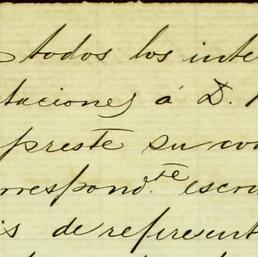 todos los inte
taciones á D.
preste su con
rrespond.te escri
is de represent